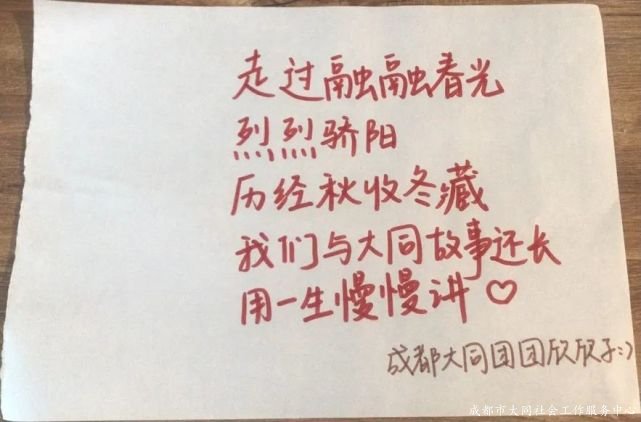 走过融融春光
烈烈骄阳
历经秋收冬藏
我们与大同故事还长
用一生慢慢讲♡
成都大同团团欣欣子:)
成都市大同社会工作服务中心